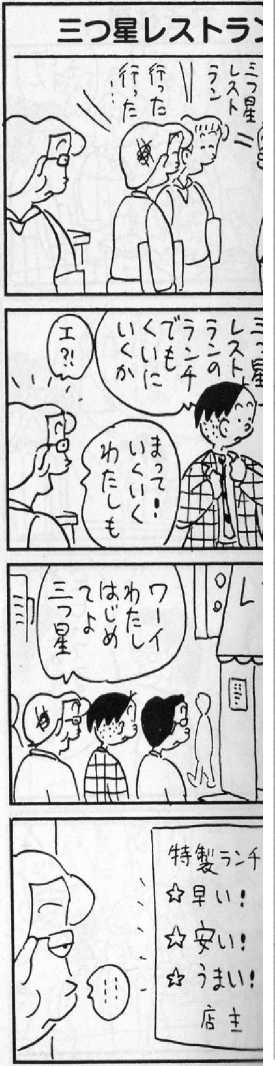 三つ星レストラン
三つ星
レスト
ラン
行った
行った…
三つ星
レスト
ランの
ランチ
でも
くいに
いくか
まって!
いくいく
わたしも
エ?!
レ
ワーイ
わたし
はじめ
てよ
三つ星
特製ランチ
☆早い!
☆安い!
☆うまい!
店主
……